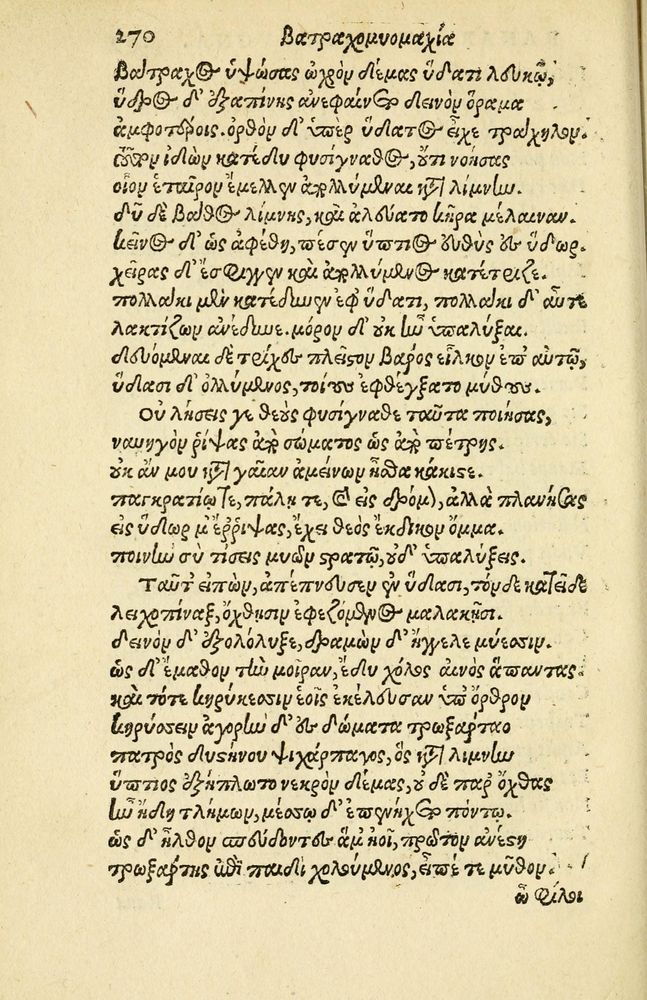 270 Βατραχομυομαχία
βάτραχος ὑψώσας ὠχρὸν δέμας ὕδατι λευκῷ,
ὕδρος δ' ἐξαπίνης ἀνεφαίνετο δεινὸν ὅραμα
ἀμφοτέροις. ὀρθὸν δ' ὑπὲρ ὕδατος εἶχε τράχηλον.
τοῦτον ἰδὼν κατέδυ φυσίγναθος, οὔτι νοήσας
οἷον ἑταῖρον ἔμελλεν ἀπολλύμεναι κατὰ λίμνην.
δῦ δὲ βάθος λίμνης, καὶ ἀλεύατο κῆρα μέλαιναν.
κεῖνος δ' ὡς ἀφέθη, πέσεν ὕπτιος εὐθὺς ἐν ὕδωρ.
χεῖρας δ' ἔσφιγγεν καὶ ἀπολλύμενος κατέτριζε.
πολλάκι μὲν κατέδυνεν ἐφ' ὕδατι, πολλάκι δ' αὖτε
λακτίζων ἀνέδυνε. μόρον δ' οὐκ ἦν ὑπαλύξαι.
δευόμεναι δὲ τρίχες πλεῖστον βάρος εἷλκον ἐπ' αὐτῷ,
ὕδασι δ' ὀλλύμενος, τοίους ἐφθέγξατο μύθους.
Οὐ λήσεις γε θεοὺς φυσίγναθε ταῦτα ποιήσας,
ναυηγὸν ῥίψας ἀπὸ σώματος ὡς ἀπὸ πέτρης.
οὐκ ἄν μου κατὰ γαῖαν ἀμείνων ἦσθα κάκιστε.
παγκρατίῳ τε, πάλῃ τε, καὶ εἰς δρόμον, ἀλλὰ πλανήσας
εἰς ὕδωρ μ' ἔῤῥιψας, ἔχει θεὸς ἔκδικον ὄμμα.
ποινὴν σὺ τίσεις μυῶν στρατῷ, οὐδ' ὑπαλύξεις.
Ταῦτ' εἰπὼν, ἀπέπνευσεν ἐν ὕδασι, τόνδε κατεῖδε
λειχοπίναξ, ὄχθῃσιν ἐφεζόμενος μαλακῇσι.
δεινὸν δ' ἐξολόλυξε, δραμὼν δ' ἤγγελε μύεσσιν.
ὡς δ' ἔμαθον τὴν μοῖραν, ἔδυ χόλος αἰνὸς ἅπαντας.
καὶ τότε κηρύκεσσιν ἑοῖς ἐκέλευσαν ὑπ' ὄρθρον
κηρύσσειν ἀγορὴν δ' ἐς δώματα τρωξάρταο
πατρὸς δυστήνου ψιχάρπαγος, ὃς κατὰ λίμνην
ὕπτιος ἐξήπλωτο νεκρὸν δέμας, οὐδὲ παρ' ὄχθας
ἦν ἤδη τλήμων, μέσσῳ δ' ἐπενήχετο πόντῳ.
ὡς δ' ἦλθον σπεύδοντες ἅμ' ἠοῖ, πρῶτον ἀνέστη
τρωξάρτης ἐπὶ παιδὶ χολούμενος, εἶπέ τε μῦθον.
ὦ φίλοι